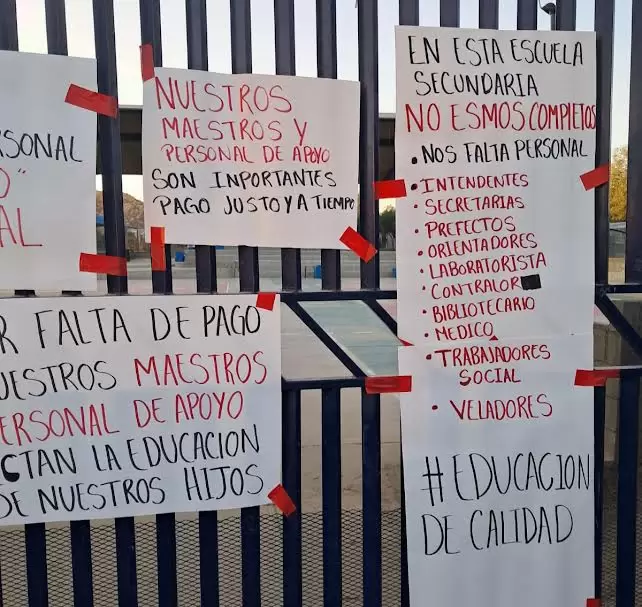 ERSONAL
O"
AL
NUESTROS
MAESTROS Y
PERSONAL DE APOYO
SON INPORTANTES
PAGO JUSTO Y A TIEMPO
R FALTA DE PAGO
UESTROS MAESTROS
ERSONAL DE APOYO
CTAN LA EDUCACION
DE NUESTROS HIJOS
EN ESTA ESCUELA
SECUNDARIA
NO ESMOS COMPLETOS
• NOS FALTA PERSONAL
• INTENDENTES
• SECRETARIAS
• PREFECTOS
• ORIENTADORES
• LABORATORISTA
• CONTRALOR
• BIBLIOTECARIO
• MEDICO
• TRABAJADORES
SOCIAL
• VELADORES
#EDUCACION
DE CALIDAD